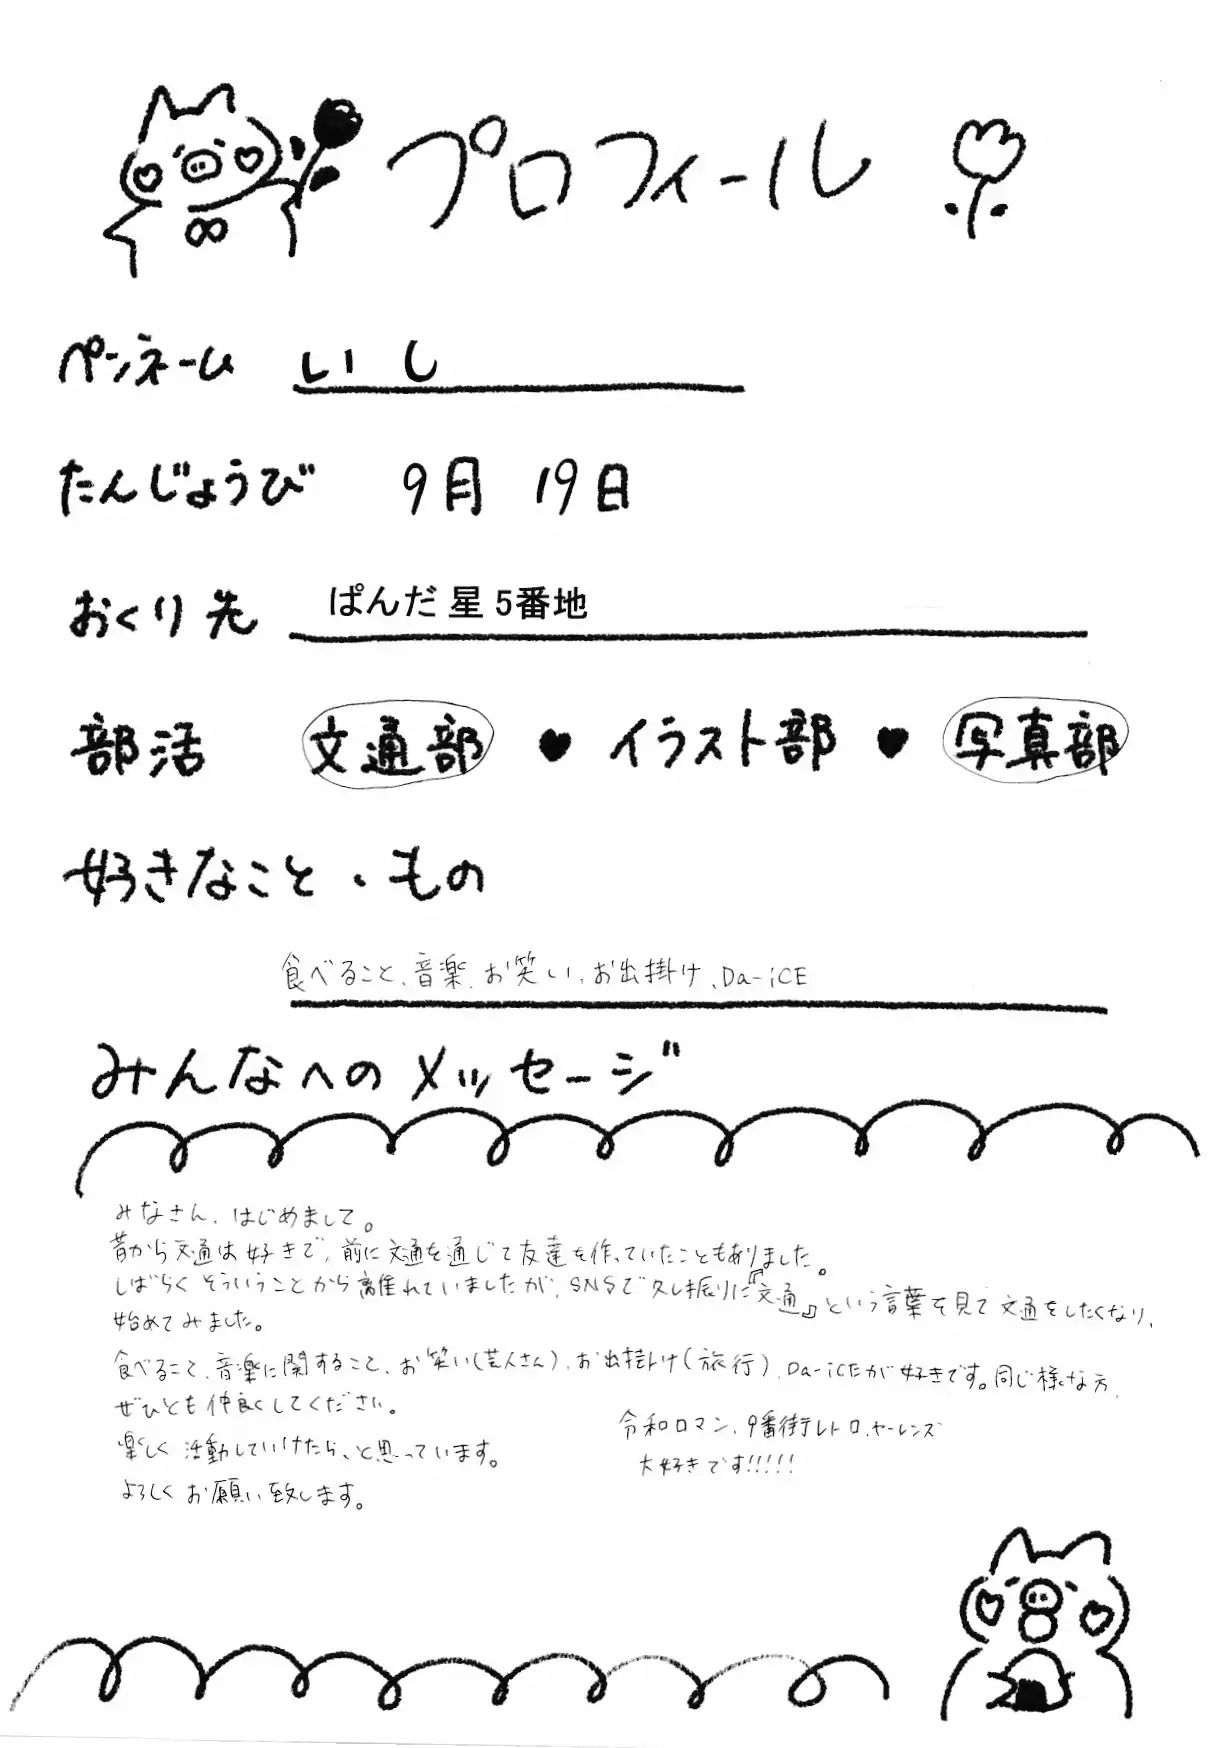 プロフィール
ペンネーム いし
たんじょうび 9月 19日
おくり先 ぱんだ 星 5番地
部活 文通部 ♥ イラスト部 ♥ 写真部
好きなこと・もの
食べること、音楽、お笑い、お出掛け、Da-iCE
みんなへのメッセージ
みなさん、はじめまして。
昔から文通は好きで、前に文通を通じて友達を作っていたこともありました。
しばらくそういうことから離れていましたが、SNSで久し振りに『文通』という言葉を見て文通をしたくなり、
始めてみました。
食べること、音楽に関すること、お笑い(芸人さん)、お出掛け(旅行)、Da-iCEが好きです。同じ様な方、
ぜひとも仲良くしてください。
令和ロマン、9番街レトロ、ヤーレンズ
楽しく活動していけたら、と思っています。
大好きです!!!!!
よろしくお願い致します。